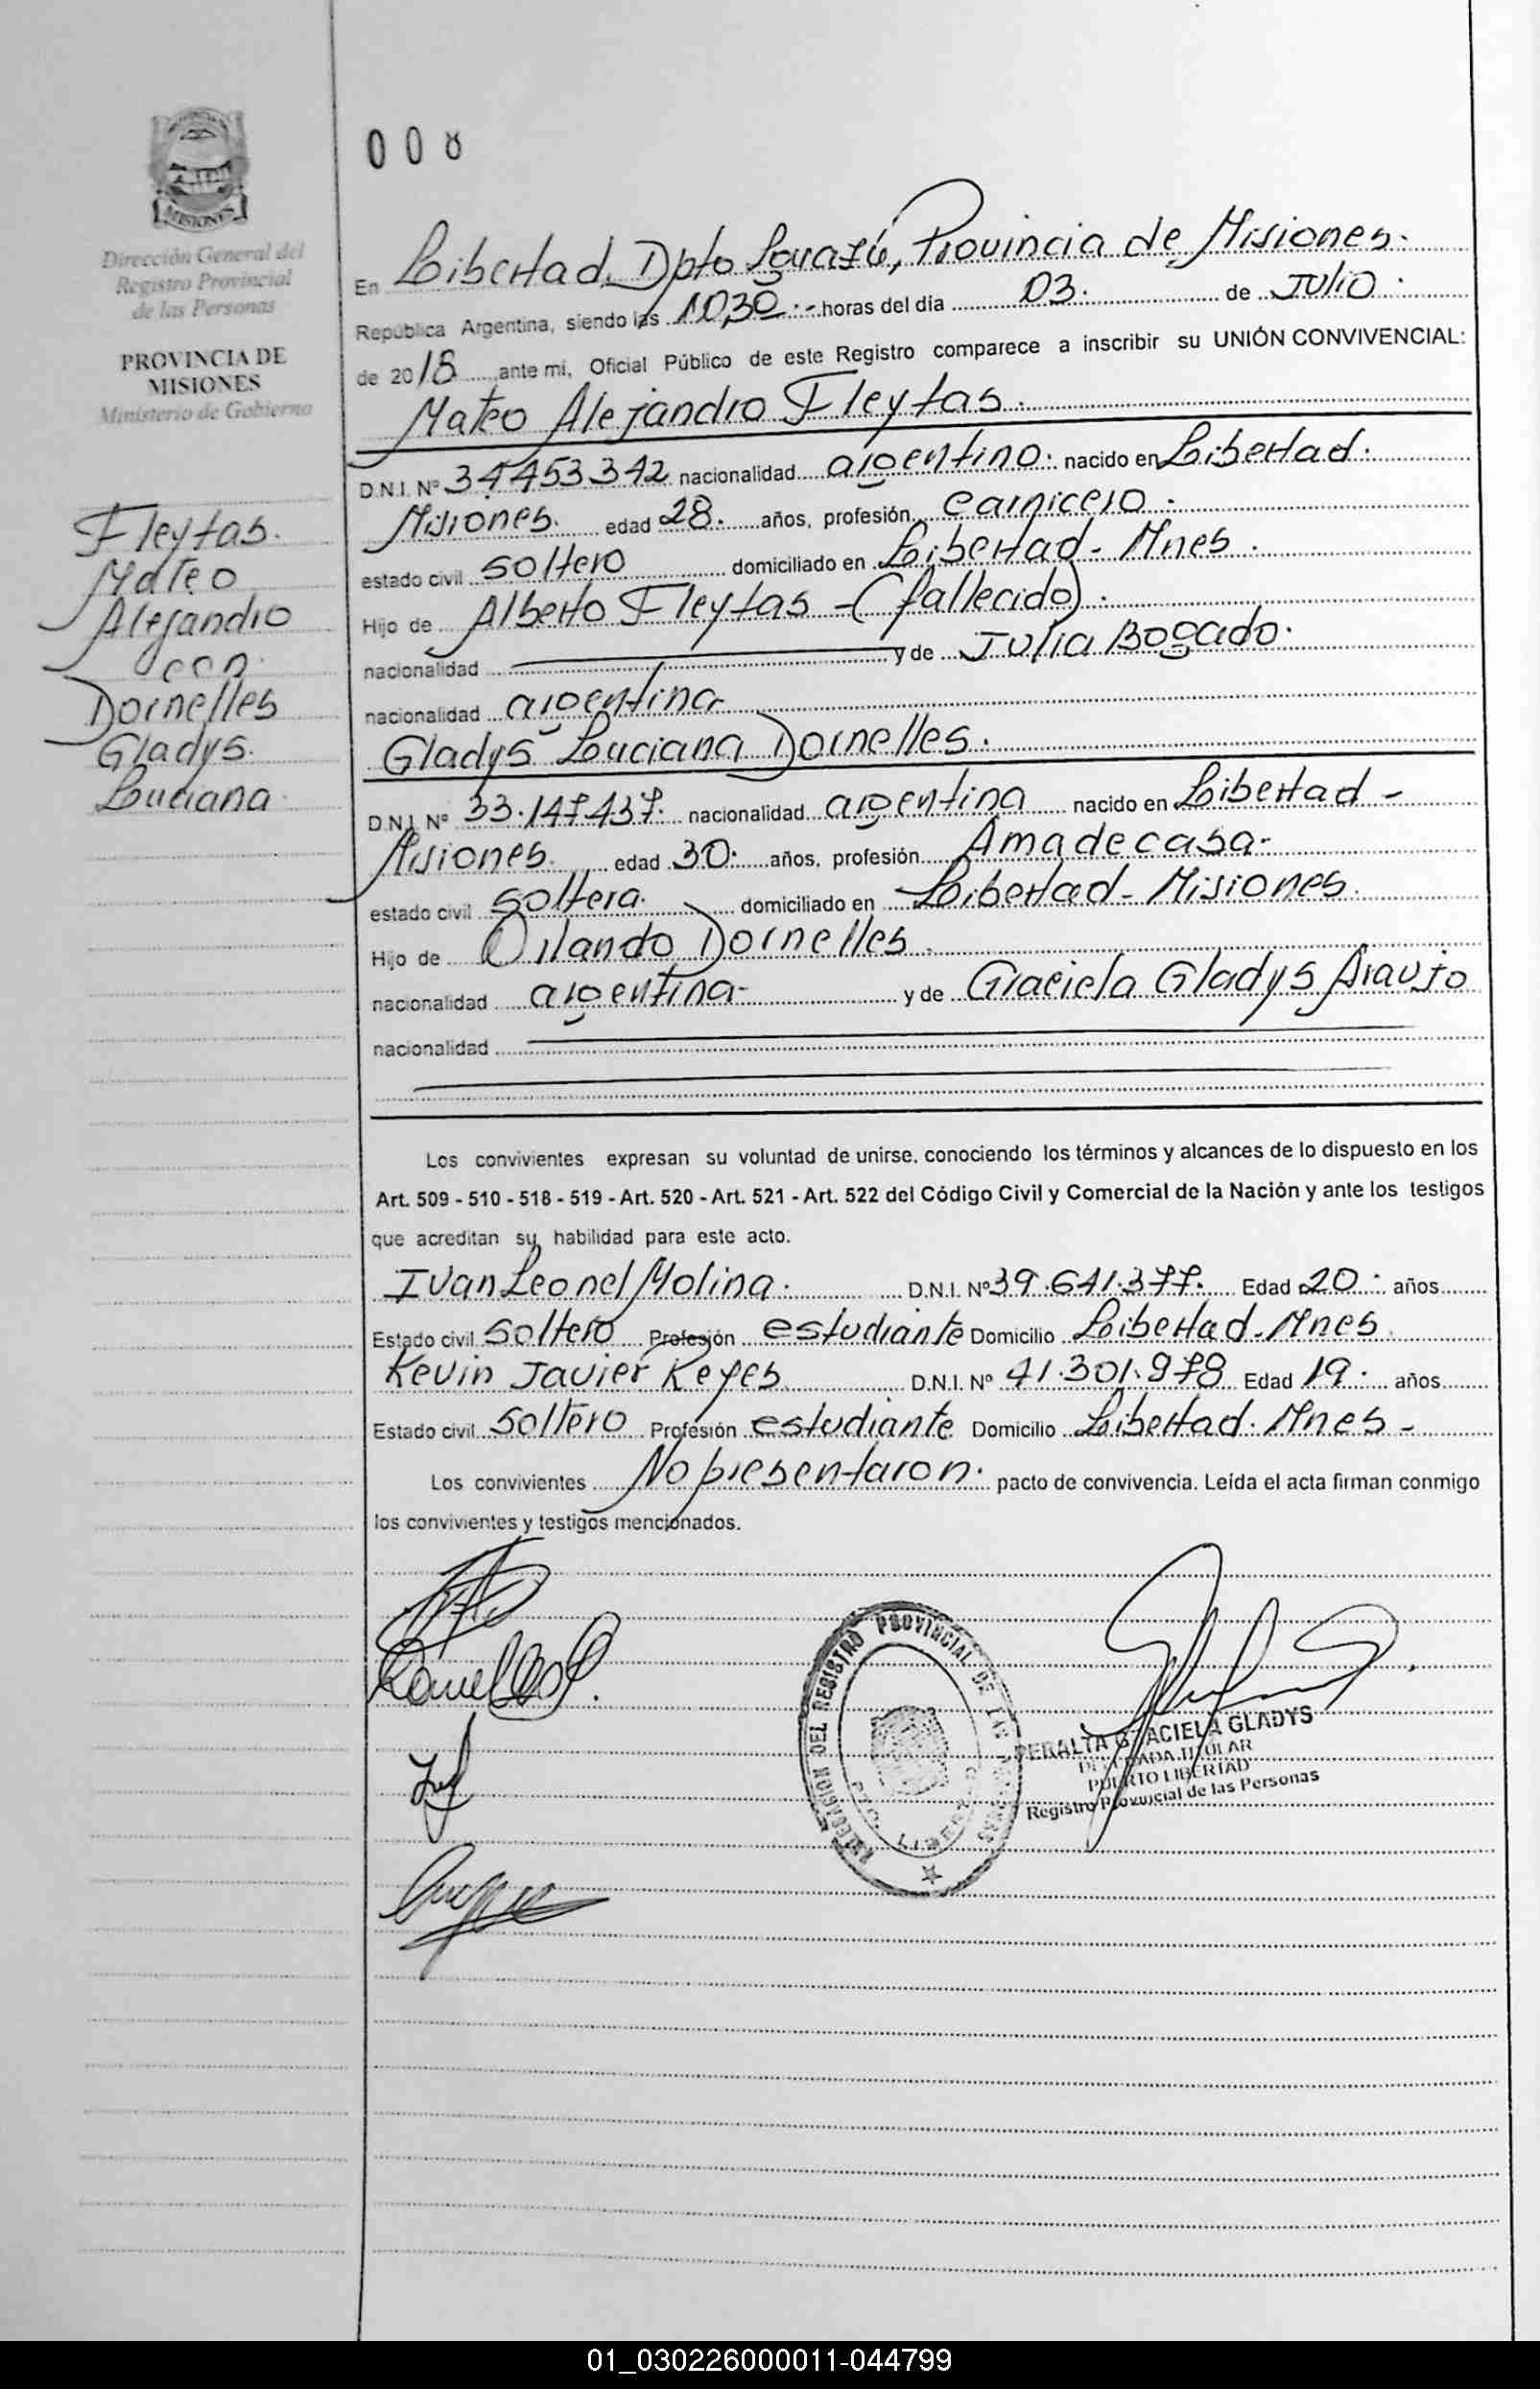 008
MISIONES
Dirección General del
Registro Provincial
de las Personas
PROVINCIA DE
MISIONES
Ministerio de Gobierno
Fleytas.
Mateo
Alejandro
con
Dornelles
Gladys.
Luciana
En Libertad, Dpto Iguazú, Provincia de Misiones.
República Argentina, siendo las 10,30.- horas del día 03. de Julio.
de 2018 ante mi, Oficial Público de este Registro comparece a inscribir su UNIÓN CONVIVENCIAL:
Mateo Alejandro Fleytas.
D.N.I. Nº 34.453.342 nacionalidad argentino. nacido en Libertad.
Misiones. edad 28. años, profesión carnicero.
estado civil soltero domiciliado en Libertad - Mnes.
Hijo de Alberto Fleytas - (fallecido).
nacionalidad y de Julia Bogado.
nacionalidad argentina
Gladys Luciana Dornelles.
D.N.I. Nº 33.147.437. nacionalidad argentina nacido en Libertad -
Misiones. edad 30. años, profesión Ama de casa.
estado civil soltera. domiciliado en Libertad - Misiones.
Hijo de Orlando Dornelles.
nacionalidad argentina- y de Graciela Gladys Araujo
nacionalidad
Los convivientes expresan su voluntad de unirse, conociendo los términos y alcances de lo dispuesto en los
Art. 509 - 510 - 518 - 519 - Art. 520 - Art. 521 - Art. 522 del Código Civil y Comercial de la Nación y ante los testigos
que acreditan su habilidad para este acto.
Ivan Leonel Molina. D.N.I. Nº 39.641.377. Edad 20. años
Estado civil soltero Profesión estudiante Domicilio Libertad - Mnes.
Kevin Javier Reyes D.N.I. Nº 41.301.978 Edad 19. años
Estado civil soltero Profesión estudiante Domicilio Libertad. Mnes -
Los convivientes No presentaron. pacto de convivencia. Leída el acta firman conmigo
los convivientes y testigos mencionados.
DELEGACION DEL REGISTRO PROVINCIAL DE LAS PERSONAS
PTO. LIBERTAD
PERALTA GRACIELA GLADYS
DELEGADA TITULAR
PUERTO LIBERTAD
Registro Provincial de las Personas
01_030226000011-044799